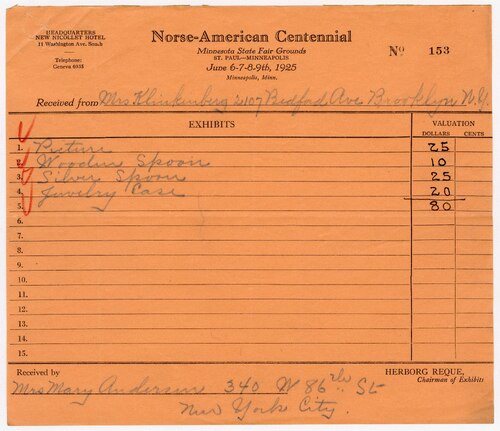 HEADQUARTERS
NEW NICOLLET HOTEL
11 Washington Ave. South
Telephone:
Geneva 6935
Norse-American Centennial
Minnesota State Fair Grounds
ST. PAUL—MINNEAPOLIS
June 6-7-8-9th, 1925
Minneapolis, Minn.
No 153
Received from Mrs Klinkenberg 2107 Bedford Ave Brooklyn N.Y.
EXHIBITS
VALUATION
DOLLARS CENTS
1. Picture 25
2. Wooden Spoon 10
3. Silver Spoon 25
4. Juvelry Case 20
5. 80
6.
7.
8.
9.
10.
11.
12.
13.
14.
15.
Received by
HERBORG REQUE,
Chairman of Exhibits
Mrs Mary Anderson 340 W 86th St
New York City.